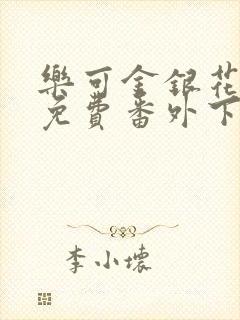 樂可金銀花
免費番外下
李小壞